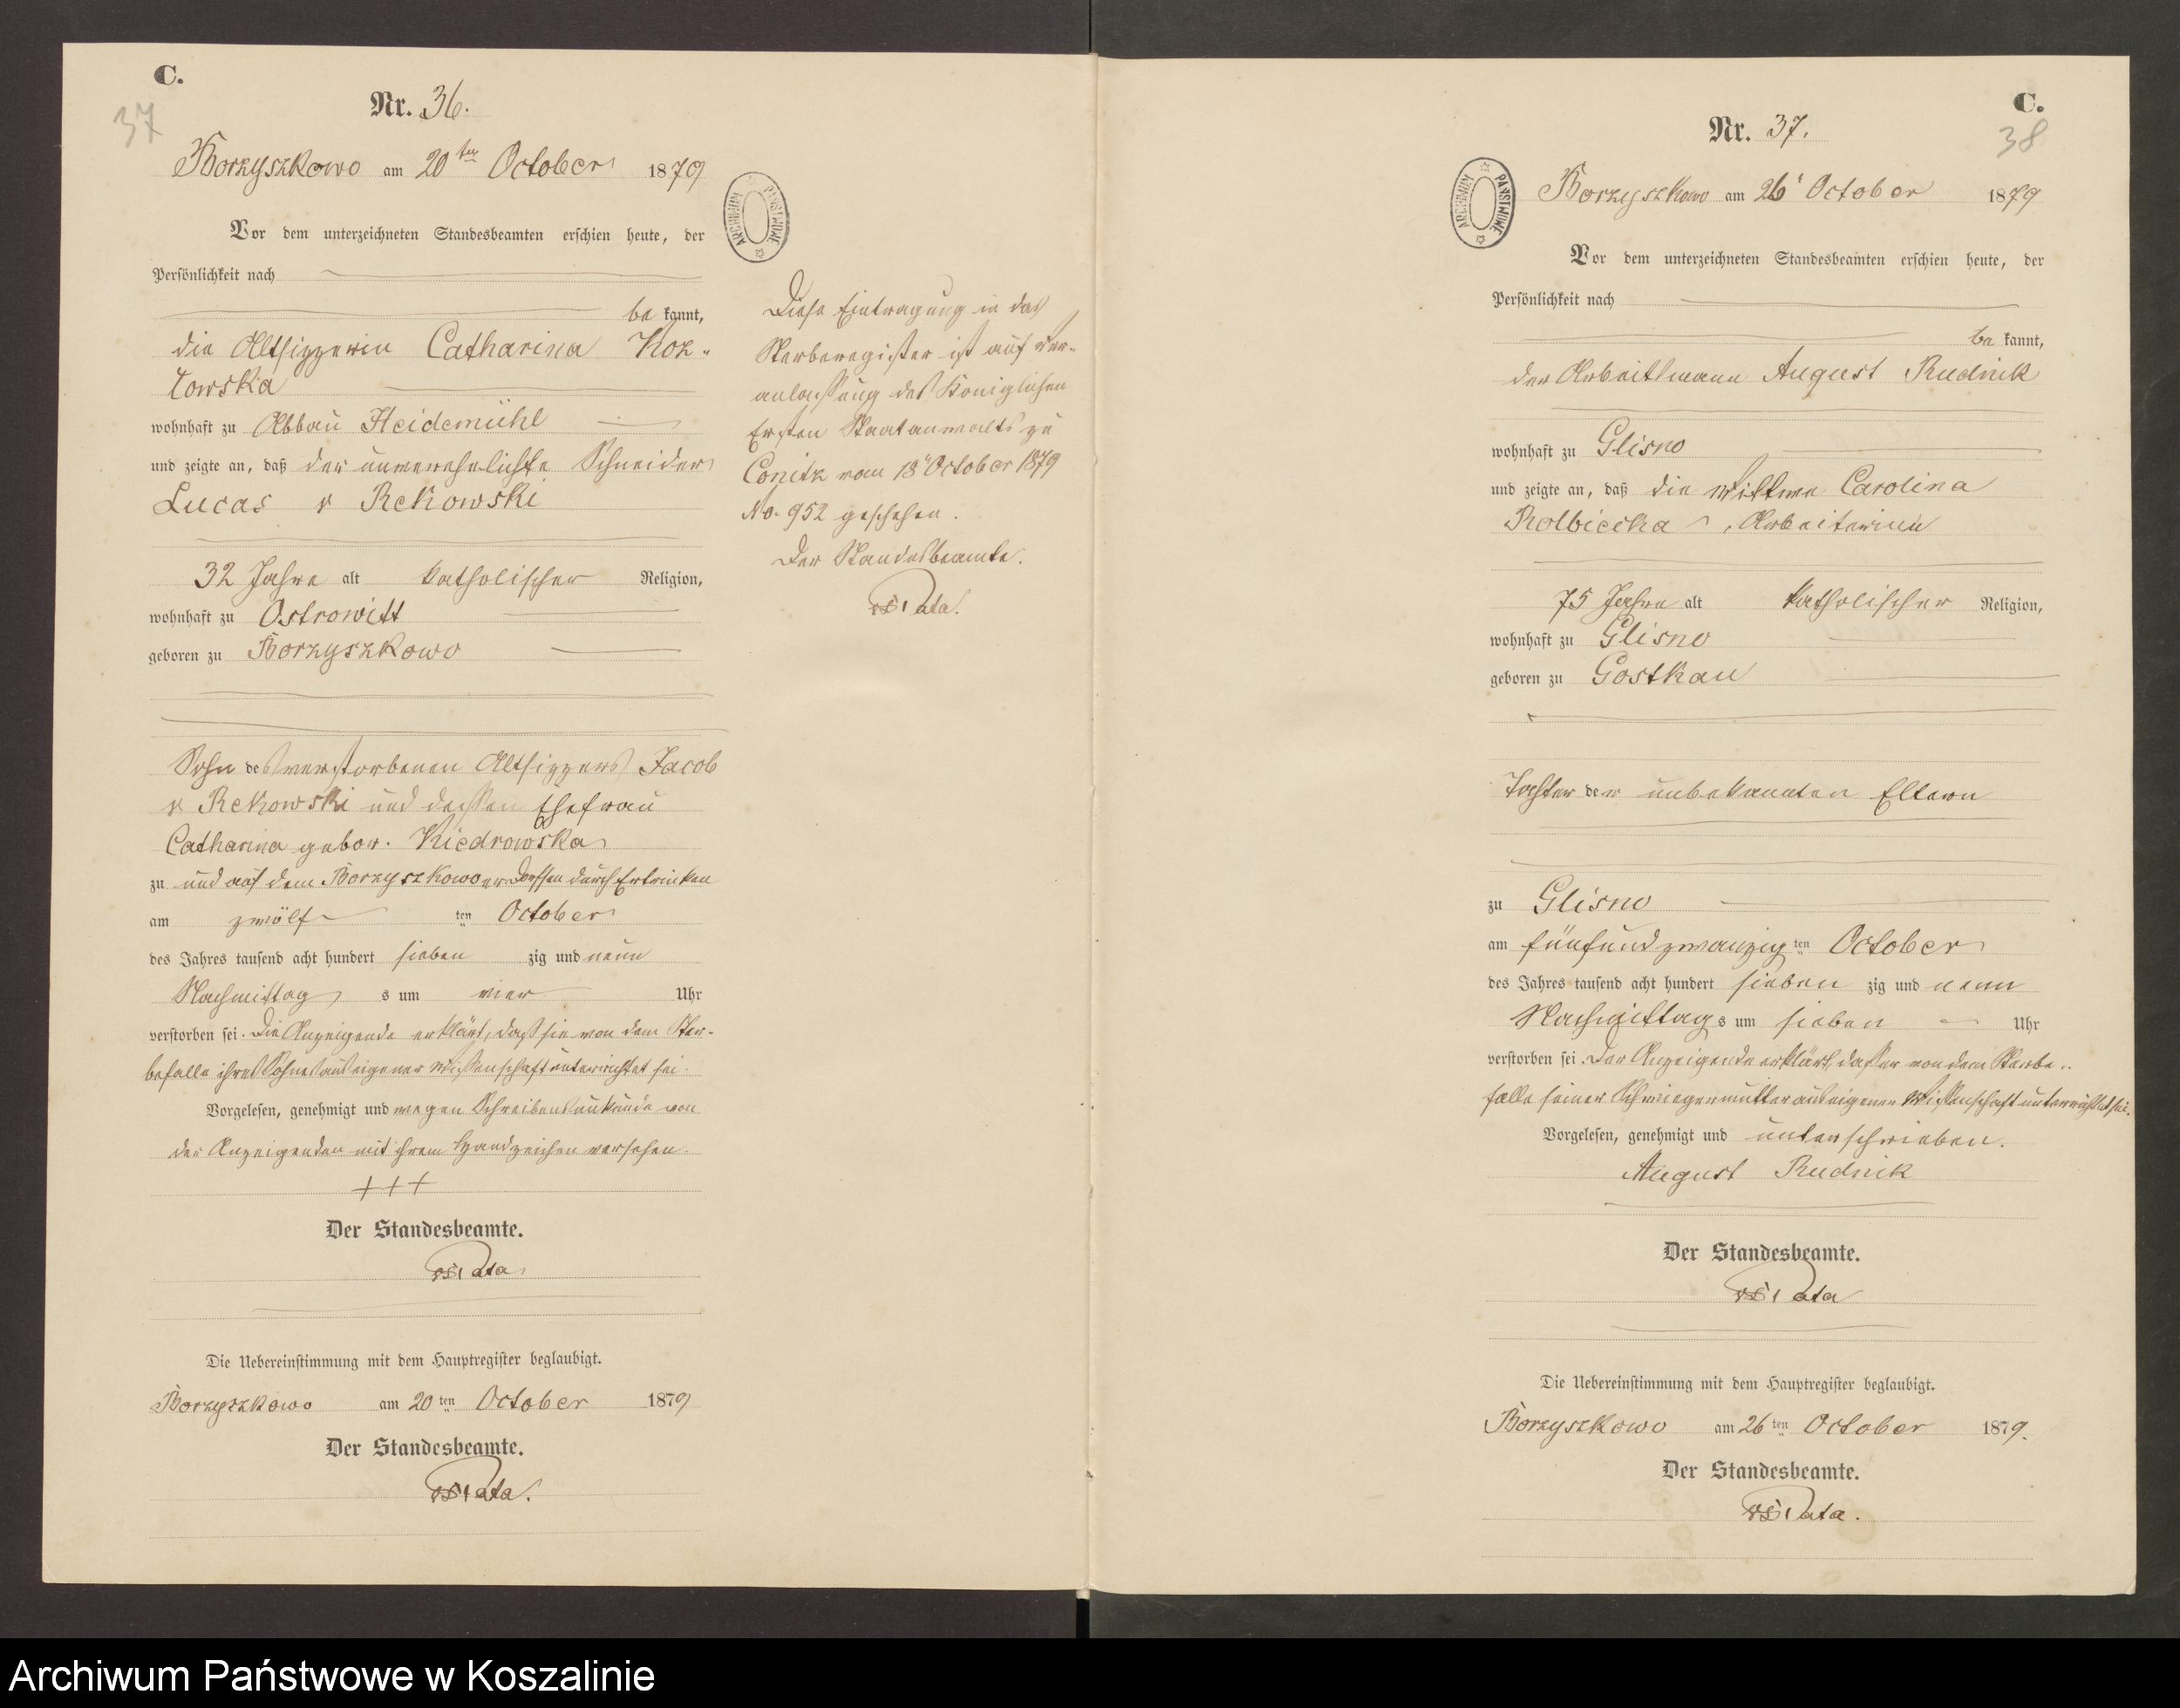 C.
37
Nr. 36.
Borzyszkowo am 20ten October 1879
Vor dem unterzeichneten Standesbeamten erschien heute, der
Persönlichkeit nach
be kannt,
die Altsitzerin Catharina Koz-
lowska
wohnhaft zu Abbau Heidemühl
und zeigte an, daß der unverehelichte Schneider
Lucas v Rekowski
32 Jahre alt katholischer Religion,
wohnhaft zu Ostrowitt
geboren zu Borzyszkowo
Sohn des verstorbenen Altsitzers Jacob
v Rekowski und dessen Ehefrau
Catharina gebor. Kiedrowska
zu und auf dem Borzyszkowoer durch Ertrinken
am zwölf ten October
des Jahres tausend acht hundert sieben zig und neun
Nachmittag s um vier Uhr
verstorben sei. Die Anzeigende erklärt, daß sie von dem Ster-
befalle ihres Sohnes aus eigener Wissenschaft unterrichtet sei.
Vorgelesen, genehmigt und wegen Schreibensunkunde von
der Anzeigenden mit ihrem Handzeichen versehen.
+++
Der Standesbeamte.
Die Uebereinstimmung mit dem Hauptregister beglaubigt.
Borzyszkowo am 20 ten October 1879
Der Standesbeamte.
ARCHIWUM PAŃSTWOWE
Diese Eintragung in das
Sterberegister ist auf Ver-
anlassung des Königlichen
Ersten Staatanwalts zu
Conitz vom 18t October 1879
No. 952 geschehen.
Der Standesbeamte.
C.
38
Nr. 37.
ARCHIWUM PAŃSTWOWE
Borzyszkowo am 26t October 1879
Vor dem unterzeichneten Standesbeamten erschien heute, der
Persönlichkeit nach
be kannt,
der Arbeitsmann August Rudnik
wohnhaft zu Glisno
und zeigte an, daß die Wittwe Carolina
Arbeiterinn
75 Jahre alt katholischer Religion,
wohnhaft zu Glisno
geboren zu Gostkau
Tochter der unbekannten Eltern
zu Glisno
am fünfundzwanzig ten October
des Jahres tausend acht hundert sieben zig und neun
Nachmittag s um sieben Uhr
verstorben sei. Der Anzeigende erklärt, daß er von dem Sterbe-
falle seiner Schwiegermutter aus eigener Wissenschaft unterrichtet sei.
Vorgelesen, genehmigt und unterschrieben.
August Rudnik
Der Standesbeamte.
Die Uebereinstimmung mit dem Hauptregister beglaubigt.
Borzyszkowo am 26 ten October 1879.
Der Standesbeamte.
Archiwum Państwowe w Koszalinie